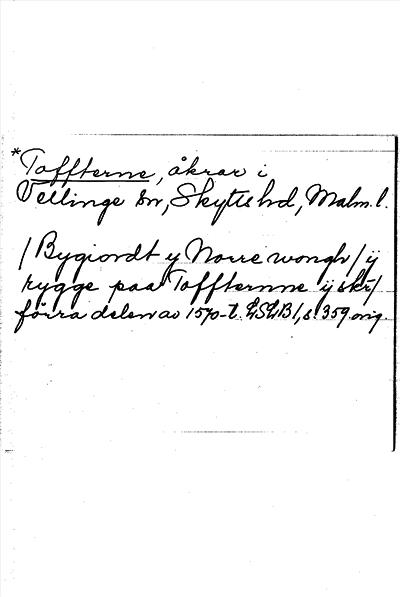 *Toffterne, åkrar i
Vellinge sn, Skytts hd, Malm. l.
/ Bygiordt y Norre wongh / ij
rygge paa Toffternne ij skr /
förra delen av 1570-t. LSLB 1, s. 359 orig.